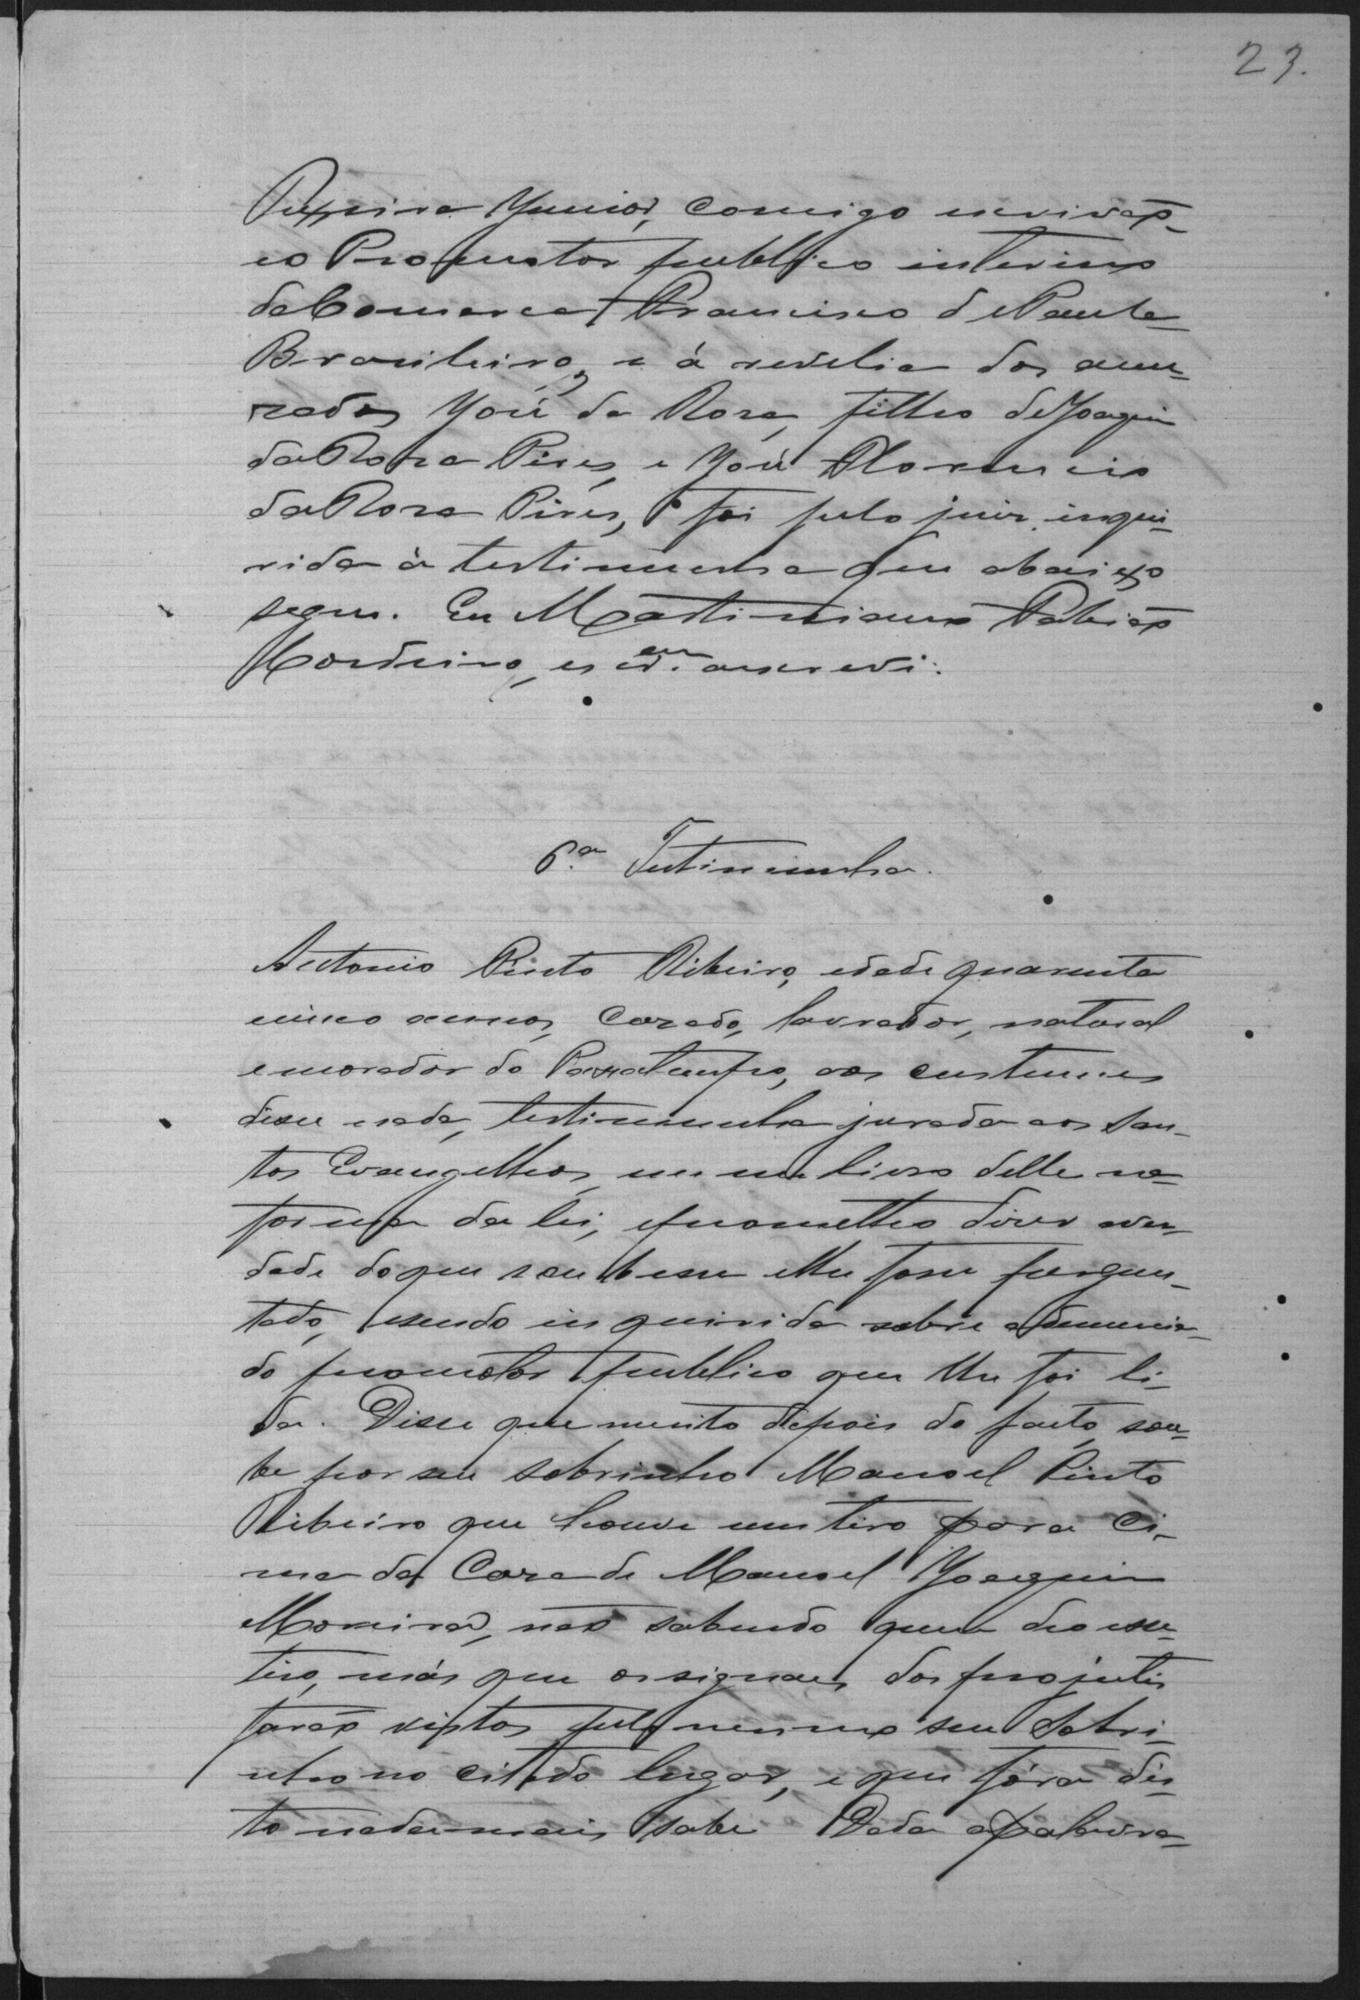 23.
Teixeira Junior, comigo escrivaõ
eo Promotor publico interino
da Comarca Francisco de Paula
Brasileiro, e á revelia dos accu-
zados José da Rosa, filho de Joaquim
da Rosa Pires, e José Florencio
da Rosa Pires, foi pelo juiz inqui-
rida á testimunha que abaixo
segue. Eu Martiniano Fabiaõ
Cordeiro, escr.am o escrevi.
6.a Testimunha.
Antonio Pinto Ribeiro, edade quarenta
cinco annos, Cazado, lavrador, natural
e morador do Passatempo, aos custumes
disse nada, testimunha jurada aos San-
tos Evangelhos, em um livro delle na
forma da lei, e prometteo dizer a ver-
dade do que soubesse e lhe fosse pergun-
tado, sendo inquirida sobre a denuncia
do promotor publico que lhe foi li-
da. Disse que muito depois do facto, sou-
be por seu sobrinho Manoel Pinto
Ribeiro que houve um tiro para Ci-
ma da Caza de Manoel Joaquim
Moreira, naõ sabendo quem deo esse
tiro, más que os signaes dos projectis
foraõ vistos pelo mesmo seu Sobri-
nho no citado lugar, e que fóra dis-
to nada mais sabe. Dada a palavra